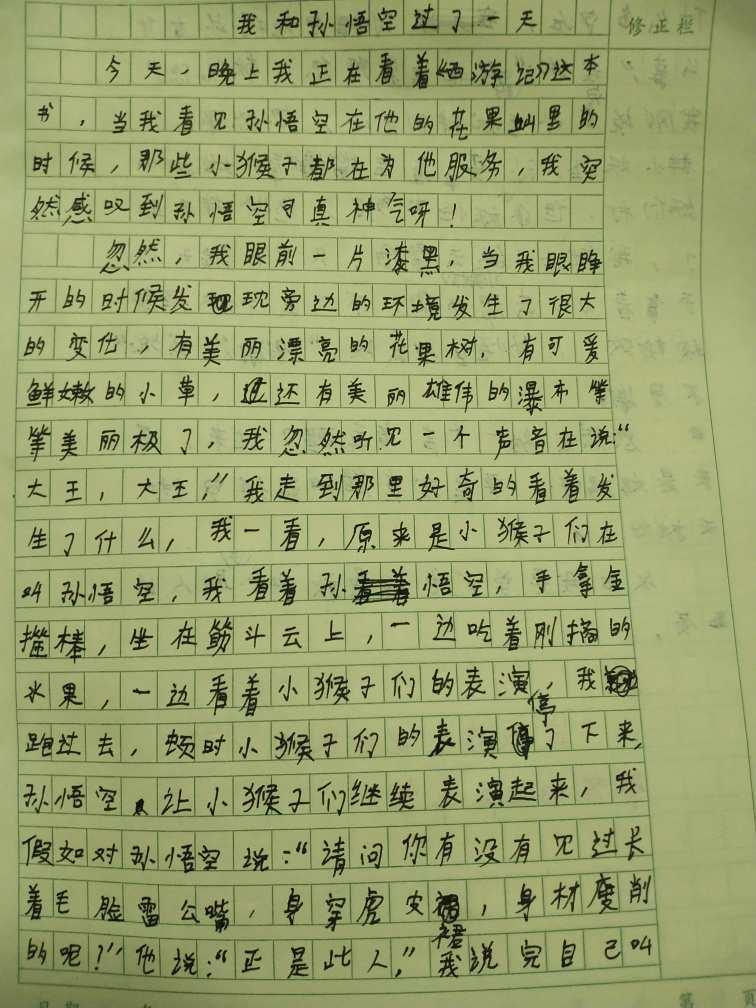 我和孙悟空过了一天
修正栏
今天,晚上我正在看着《西游记》这本
书,当我看见孙悟空在他的花果山里的
时候,那些小猴子都在为他服务,我突
然感叹到孙悟空可真神气呀!
忽然,我眼前一片漆黑,当我眼睁
开的时候发现旁边的环境发生了很大
的变化,有美丽漂亮的花果树,有可爱
鲜嫩的小草,还有美丽雄伟的瀑布等
等美丽极了,我忽然听见一个声音在说:“
大王,大王,”我走到那里好奇的看着发
生了什么,我一看,原来是小猴子们在
叫孙悟空,我看着孙悟空,手拿金
箍棒,坐在筋斗云上,一边吃着刚摘的
水果,一边看着小猴子们的表演,我
跑过去,顿时小猴子们的表演停了下来,
孙悟空让小猴子们继续表演起来,我
假如对孙悟空说:“请问你有没有见过长
着毛脸雷公嘴,身穿虎皮裙,身材瘦削
的呢?”他说:“正是此人,”我说完自己叫
第 页